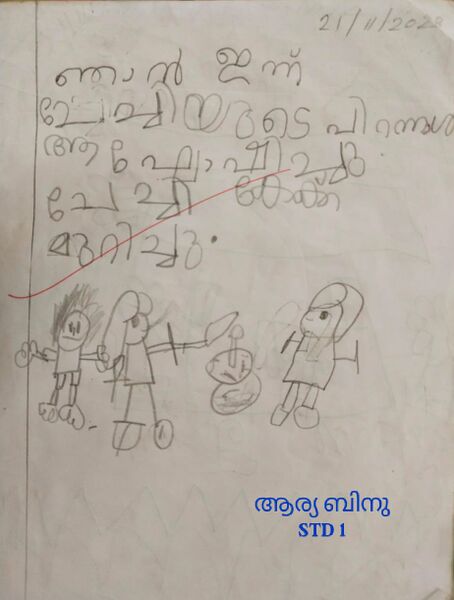 21/11/2023
ഞാൻ ഇന്ന്
ചേച്ചിയുടെ പിറന്നാൾ
ആഘോഷിച്ചു
ചേച്ചി കേക്ക്
മുറിച്ചു.
ആര്യ ബിനു
STD 1